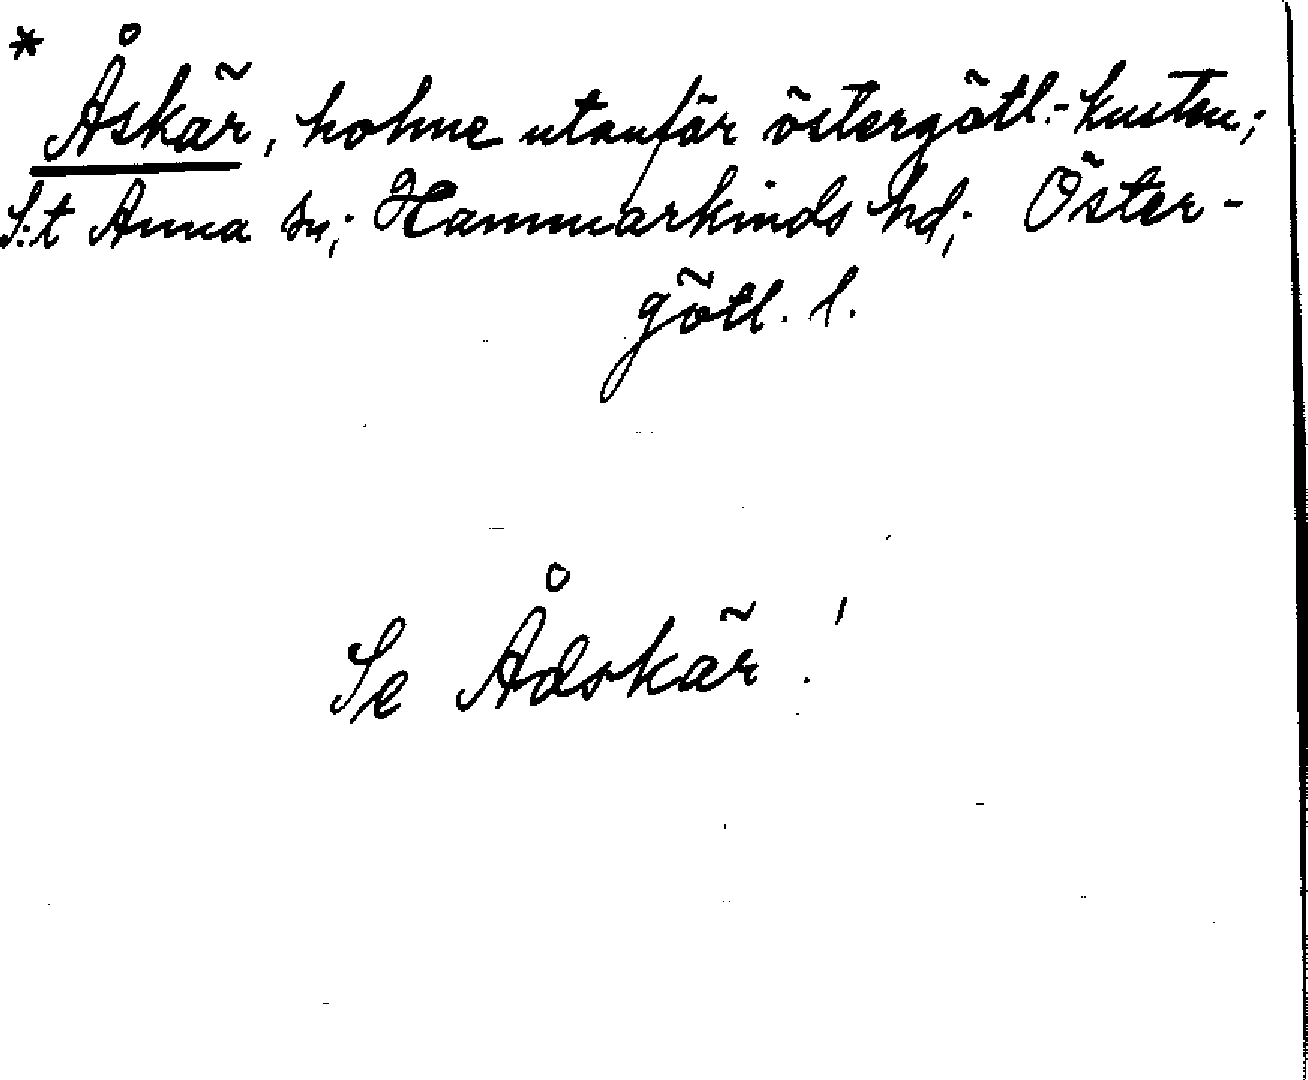 * Åskär, holme utanför östergötl.-kusten;
S:t Anna sn; Hammarkinds hd; Öster-
götl. l.
Se Ådskär!